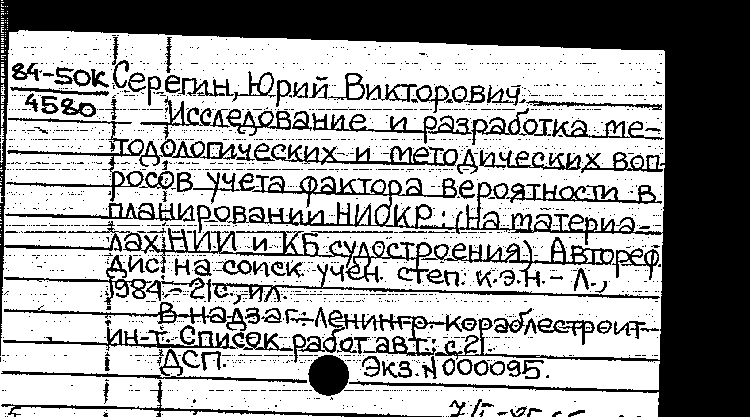 84-50К Серегин, Юрий Викторович.
4580 Исследование и разработка ме-
тодологических и методических воп-
росов учета фактора вероятности в
планировании НИОКР: (На материа-
лах НИИ и КБ судостроения). Автореф.
дис. на соиск. учен. степ. к.э.н. - Л.,
1984. - 21с., ил.
В надзаг.: Ленингр. кораблестроит.
ин-т. Список работ авт.: с. 21.
ДСП. Экз. N 000095.